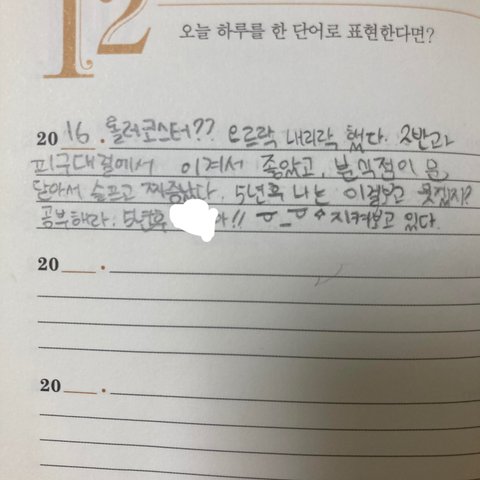 12
오늘 하루를 한 단어로 표현한다면?
2016. 롤러코스터?? 오르락 내리락 했다. 2반과
피구대결에서 이겨서 좋았고, 분식점이 문
닫아서 슬프고 짜증났다. 5년후 나는 이걸보고 웃겠지?
공부해라. 5년후 아!! ㅡ_ㅡ 지켜보고 있다.
20 .
20 .